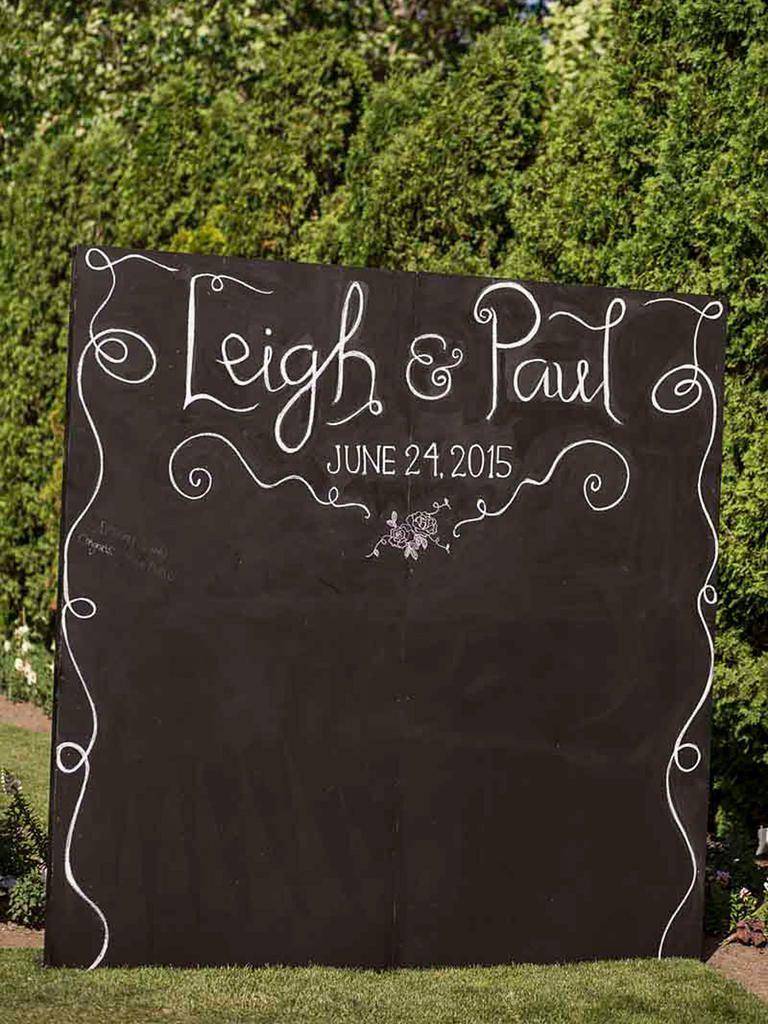 Leigh & Paul
JUNE 24, 2015
Congrats